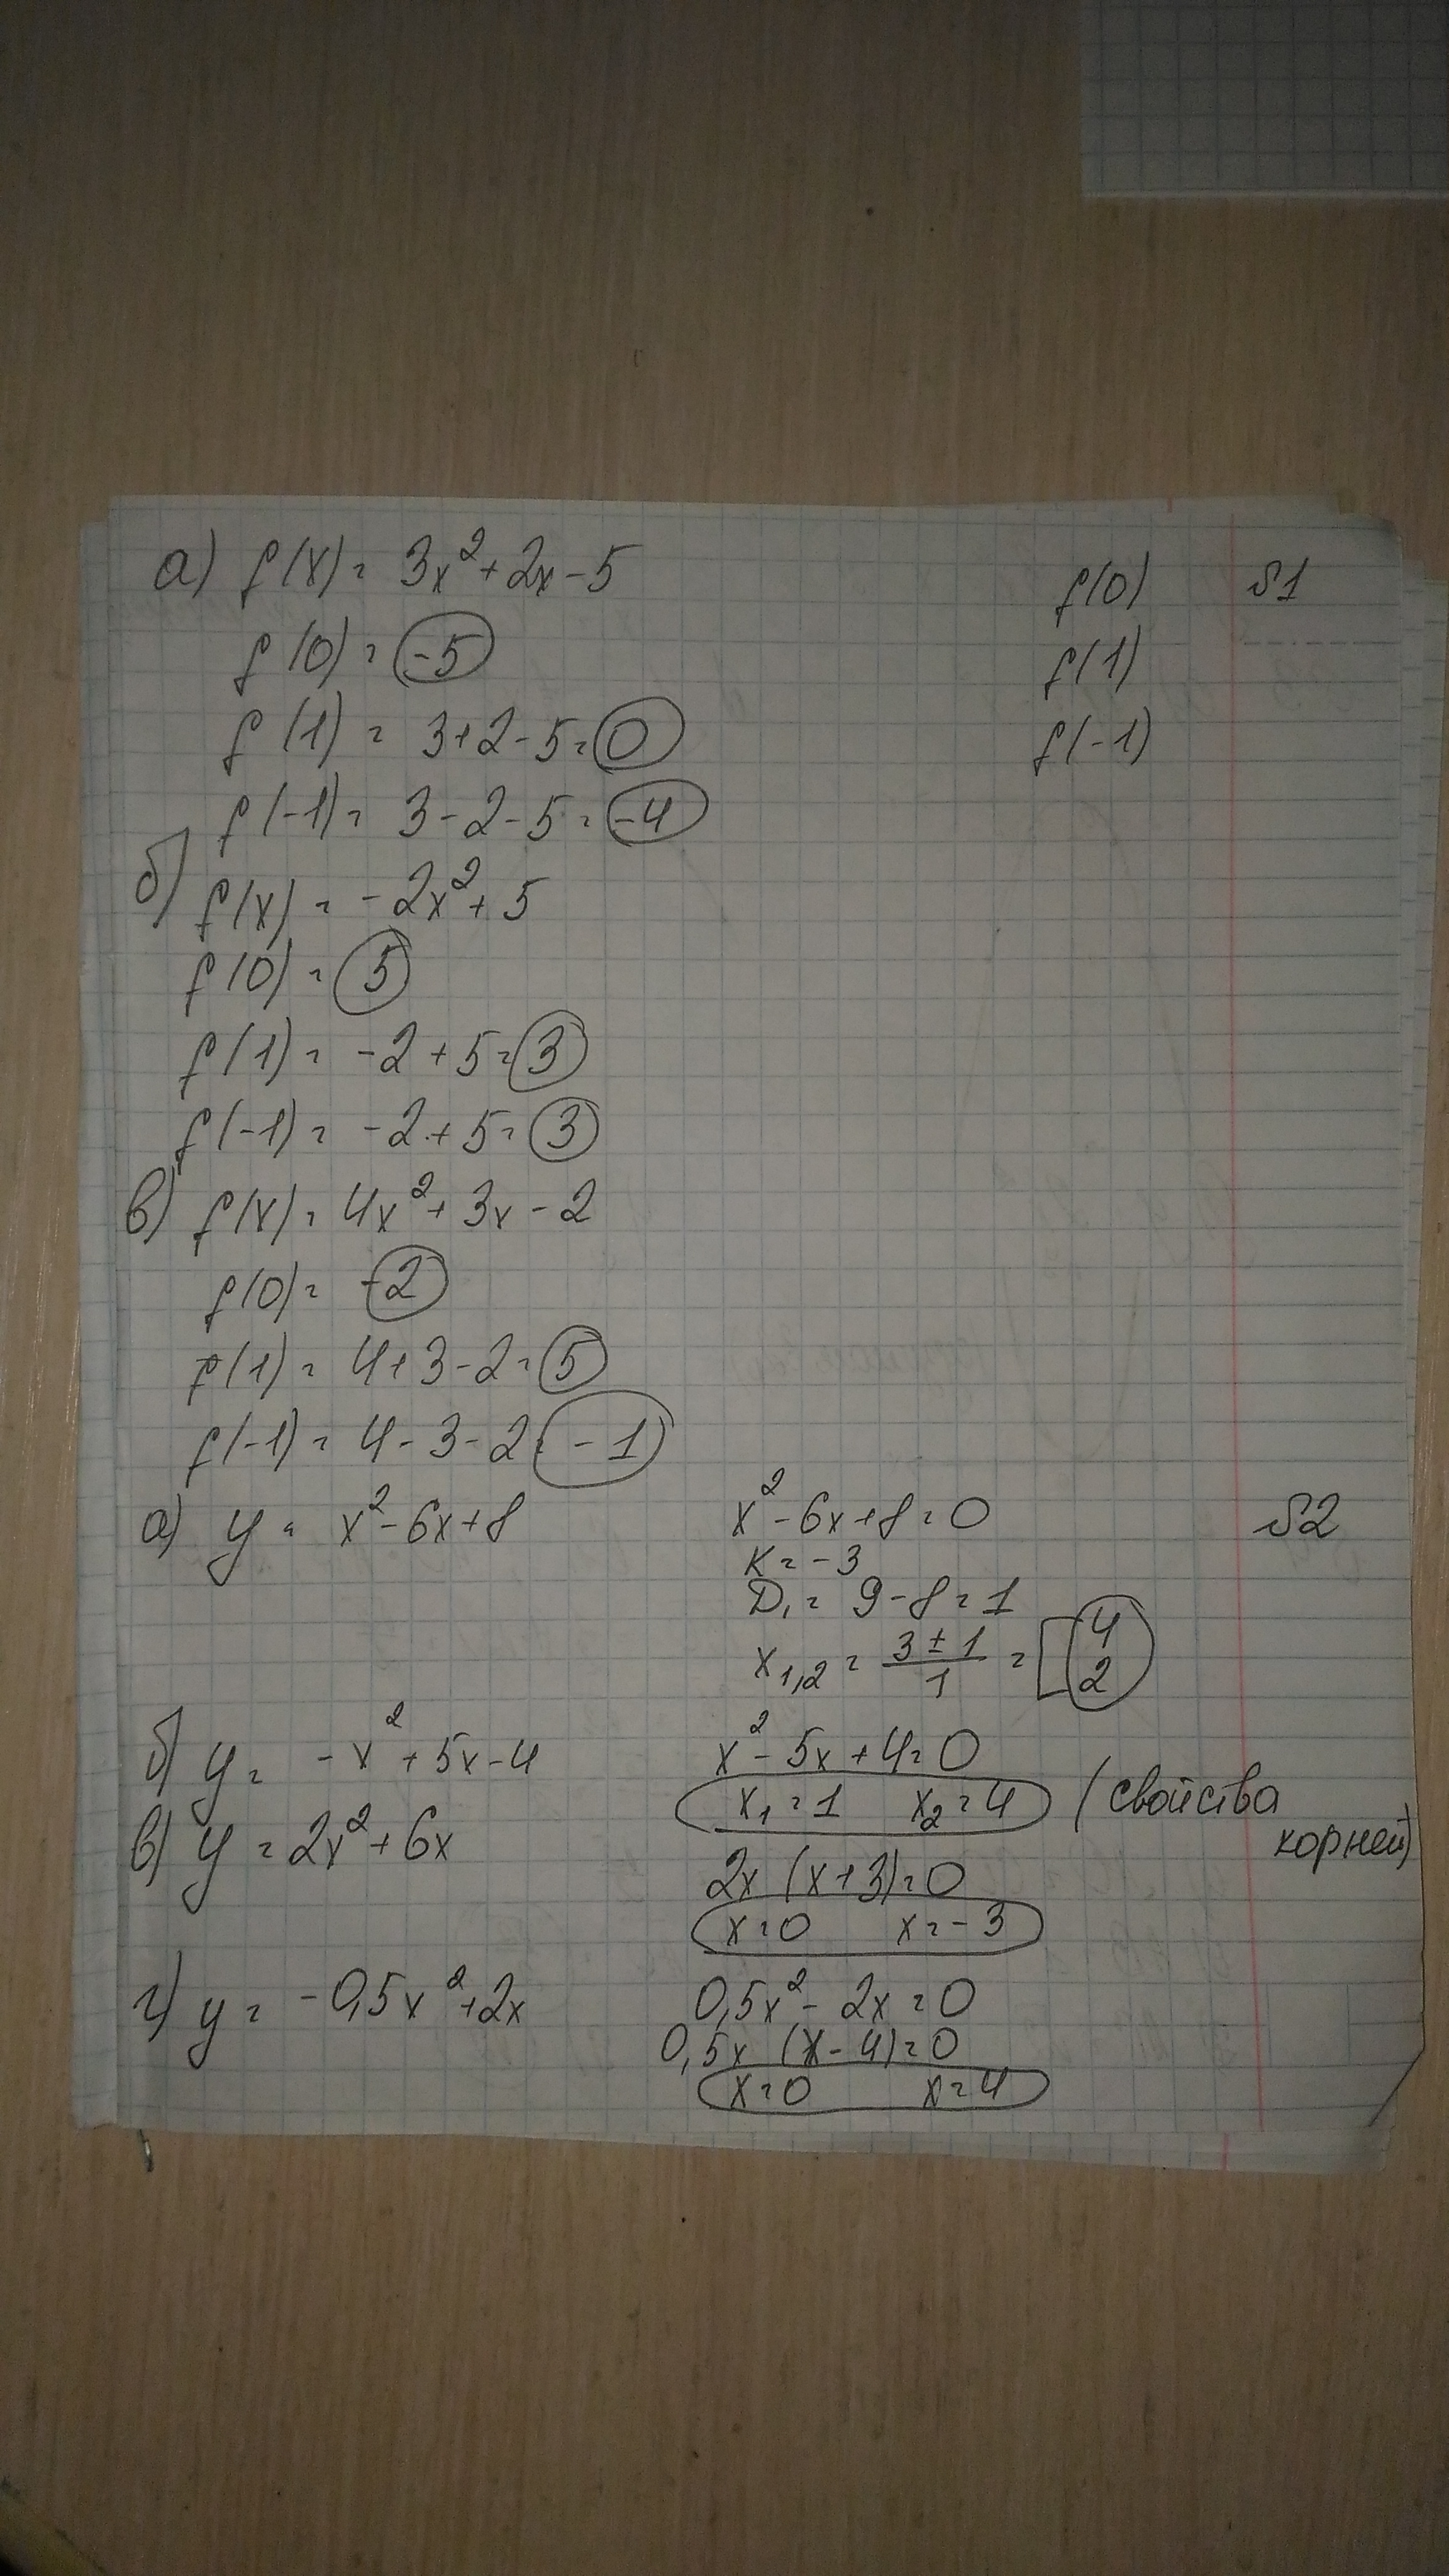 а) f(x) = 3x² + 2x - 5 f(0) №1
f(0) = -5 f(1)
f(1) = 3+2-5 = 0 f(-1)
f(-1) = 3-2-5 = -4
б) f(x) = -2x² + 5
f(0) = 5
f(1) = -2+5 = 3
f(-1) = -2+5 = 3
в) f(x) = 4x² + 3x - 2
f(0) = -2
f(1) = 4+3-2 = 5
f(-1) = 4-3-2 = -1
а) y = x² - 6x + 8 x² - 6x + 8 = 0 №2
K = -3
D₁ = 9-8 = 1
x₁,₂ = (3 ± 1)/1 = [4
2
б) y = -x² + 5x - 4 x² - 5x + 4 = 0
x₁ = 1 x₂ = 4 (свойства
корней)
в) y = 2x² + 6x
2x(x+3) = 0
x = 0 x = -3
г) y = -0,5x² + 2x 0,5x² - 2x = 0
0,5x(x-4) = 0
x = 0 x = 4